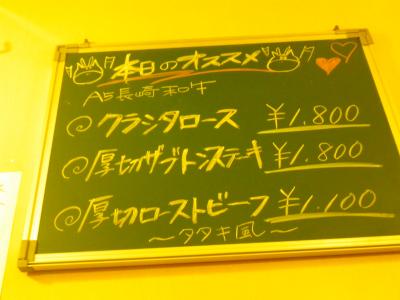 本日のオススメ
A5長崎和牛
クラシタロース ¥1.800
厚切ザブトンステーキ ¥1.800
厚切ローストビーフ ¥1.100
〜タタキ風〜